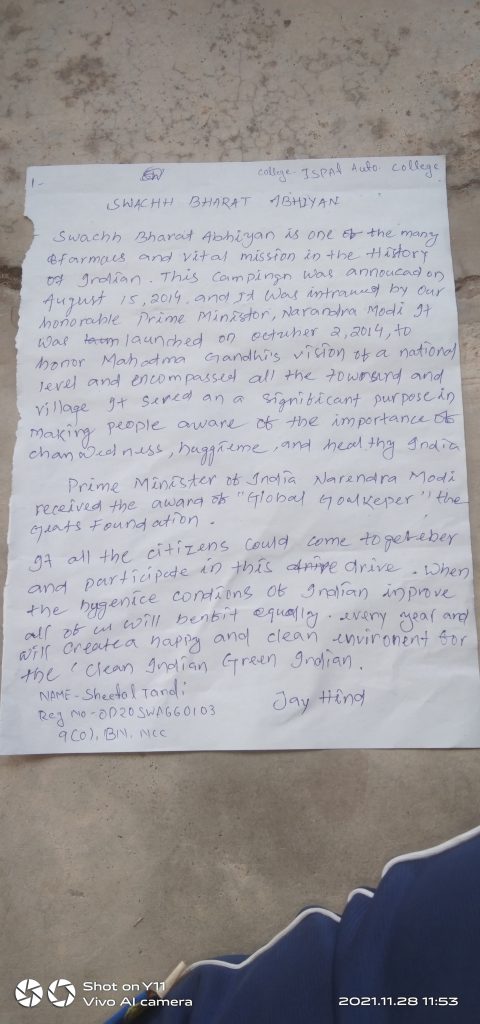 1-
college- ISPAT Auto. College
SWACHH BHARAT ABHIYAN
Swachh Bharat Abhiyan is one of the many
farmous and vital mission in the History
of Indian. This Campingn was annoucad on
August 15, 2014, and It was intraned by our
honorable Prime Ministor, Narandra Modi It
was launched on octuber 2, 2014, to
honor Mahatma Gandhi's vision of a national
level and encompassed all the toward and
village It served an a significant purpose in
making people aware of the importance of
huggieme, and healthy India
Prime Minister of India Narendra Modi
received the award of "Global Goalkeper" the
Geats Foundation.
If all the citizens could come together
and participate in this drive drive. When
the hygenice condions of Indian inprove
all of us will benbit equally. every year and
will create a happy and clean environent for
the 'Clean Indian Green Indian.
NAME - Sheetal Tandi
Reg No - OD20SWA660103
9(O), BN. NCC
Jay Hind
Shot on Y11
Vivo AI camera
2021.11.28 11:53